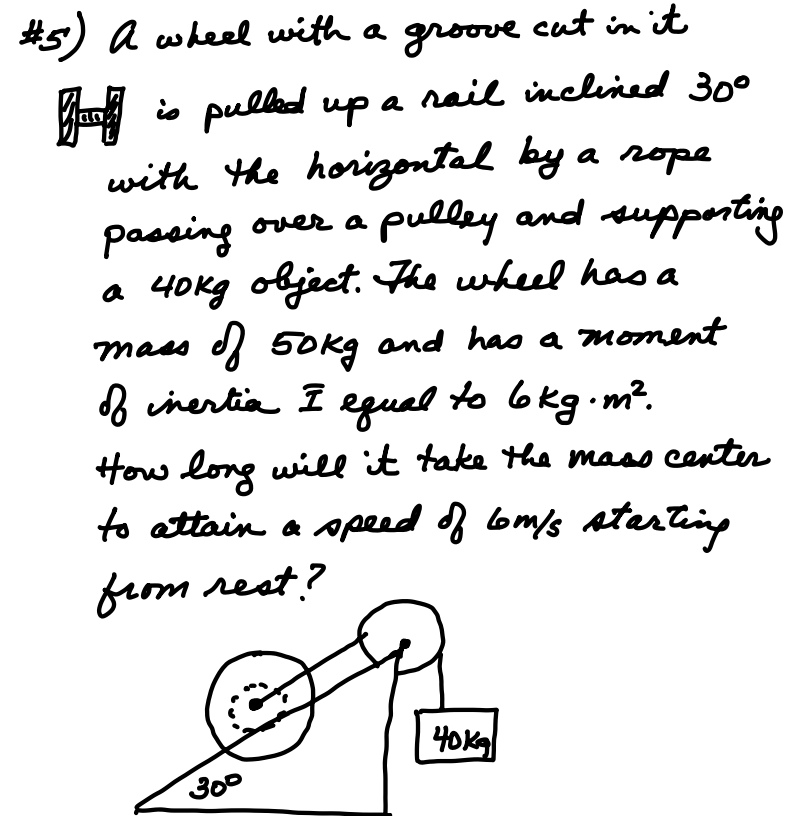 #5) A wheel with a groove cut in it
is pulled up a rail inclined 30°
with the horizontal by a rope
passing over a pulley and supporting
a 40Kg object. The wheel has a
mass of 50Kg and has a moment
of inertia I equal to 6 Kg·m².
How long will it take the mass center
to attain a speed of 6m/s starting
from rest?
40Kg
30°